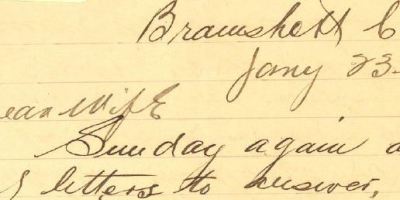 Bramshott C
Jany 23-
ear Wife
Sunday again a
letters to answer,